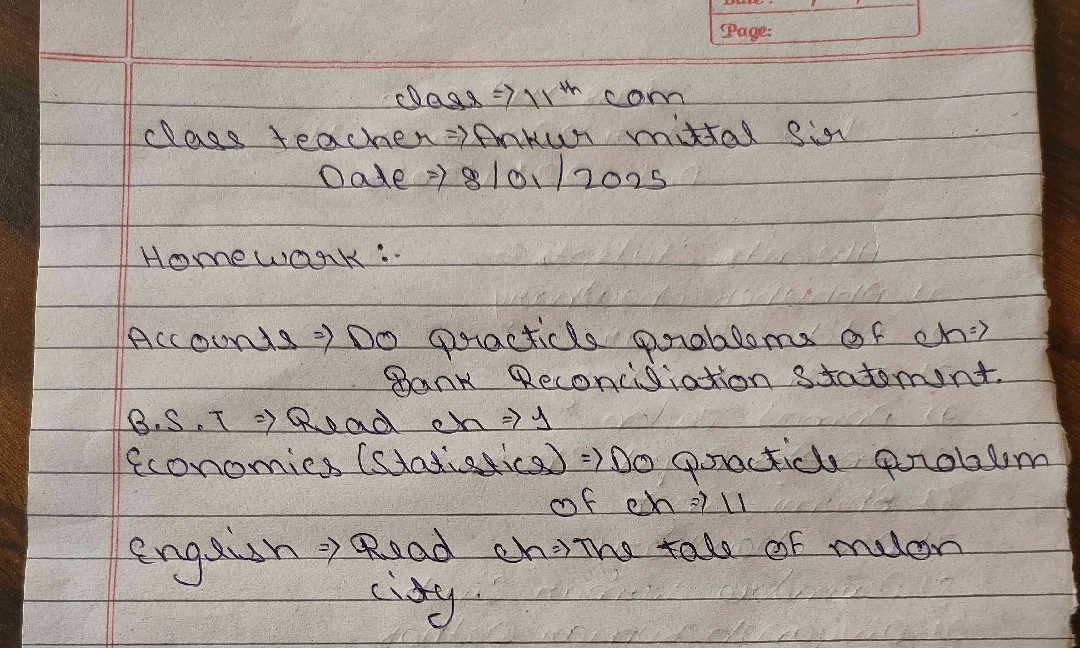 Date:
Page:
class ⇒ 11th com
class teacher ⇒ Ankur mittal Sir
Date ⇒ 8/01/2025
Homework :-
Accounts ⇒ Do practicle problems of ch ⇒
Bank Reconciliation Statement.
B.S.T ⇒ Read ch ⇒ 1
Economics (Statistics) ⇒ Do practicle problem
of ch ⇒ 11
English ⇒ Read ch ⇒ The tale of melon
city.